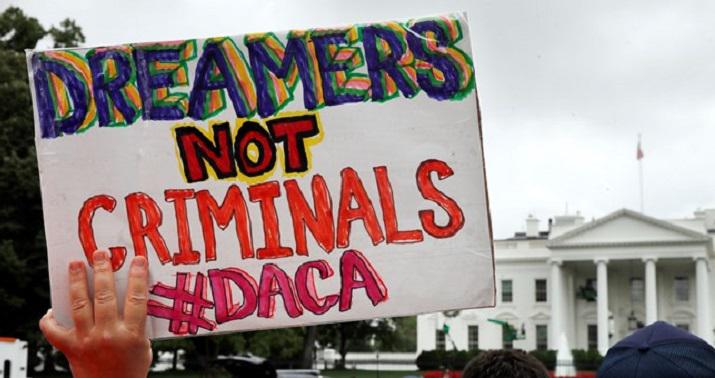 DREAMERS
NOT
CRIMINALS
#DACA